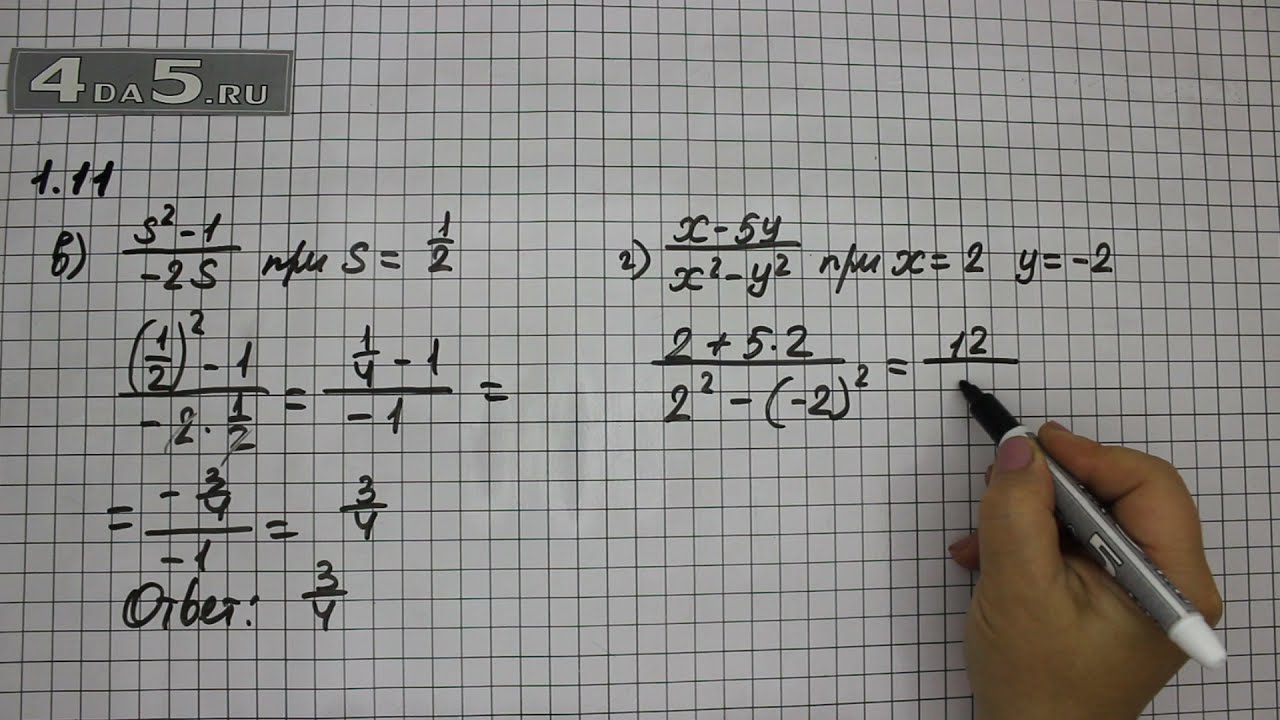 4DA5.RU
1.11
в) (s² - 1)/(-2s) при s = 1/2
((1/2)² - 1)/(-2 · 1/2) = (1/4 - 1)/(-1) =
= (-3/4)/(-1) = 3/4
Ответ: 3/4
г) (x - 5y)/(x² - y²) при x = 2 y = -2
(2 + 5·2)/(2² - (-2)²) = 12/
5